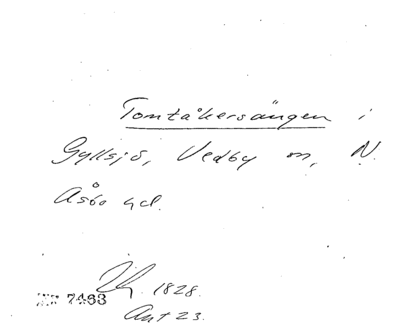 Tomtåkersängen i
Gyllsjö, Vedby sn, N.
Åsbo hd.
1828.
7463
Akt 23.